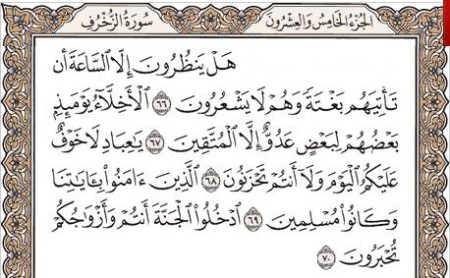 سُورَةُ الزُّخْرُفِ
الجُزْءُ الخَامِسُ وَالعِشْرُونَ
هَلْ يَنظُرُونَ إِلَّا السَّاعَةَ أَن
تَأْتِيَهُم بَغْتَةً وَهُمْ لَا يَشْعُرُونَ ٦٦ الْأَخِلَّاءُ يَوْمَئِذٍ
بَعْضُهُمْ لِبَعْضٍ عَدُوٌّ إِلَّا الْمُتَّقِينَ ٦٧ يَٰعِبَادِ لَا خَوْفٌ
عَلَيْكُمُ الْيَوْمَ وَلَا أَنتُمْ تَحْزَنُونَ ٦٨ الَّذِينَ ءَامَنُوا بِـَٔايَٰتِنَا
وَكَانُوا مُسْلِمِينَ ٦٩ ادْخُلُوا الْجَنَّةَ أَنتُمْ وَأَزْوَٰجُكُمْ
تُحْبَرُونَ ٧٠